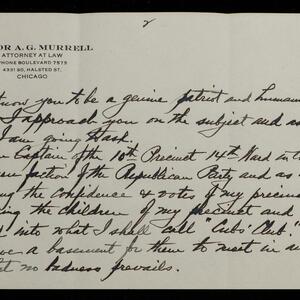 2
OR A. G. MURRELL
ATTORNEY AT LAW
PHONE BOULEVARD 7575
4331 SO. HALSTED ST.
CHICAGO
know you to be a genuine patriot and humani
I approach you on the subject and as
I am going to ask.
Captain of the 10th Precinct 14th Ward in C
faction of the Republican Party and as
the confidence & votes of my precinc
ing the children of my precinct and
into what I shall call "Cubs' Club".
a basement for them to meet in an
no badness prevails.